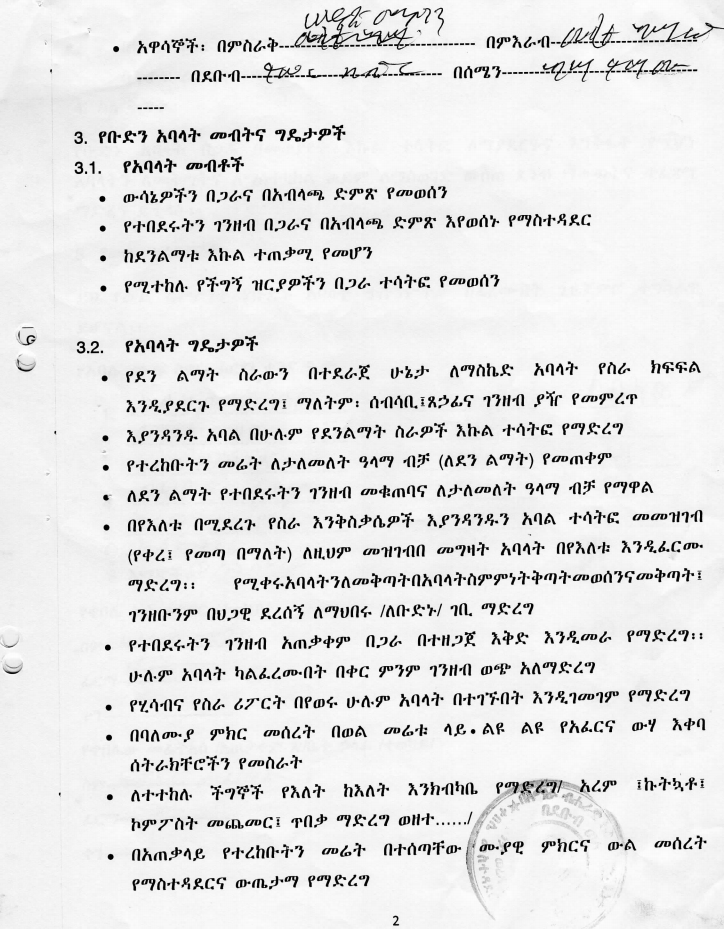 • አዋሳኞች፡ በምስራቅ-------------------------------- በምእራብ---------------------
-------- በደቡብ-------------------------------- በሰሜን--------------------------------
-----
3. የቡድን አባላት መብትና ግዴታዎች
3.1. የአባላት መብቶች
• ውሳኔዎችን በጋራና በአብላጫ ድምጽ የመወሰን
• የተበደሩትን ገንዘብ በጋራና በአብላጫ ድምጽ እየወሰኑ የማስተዳደር
• ከደንልማቱ እኩል ተጠቃሚ የመሆን
• የሚተከሉ የችግኝ ዝርያዎችን በጋራ ተሳትፎ የመወሰን
3.2. የአባላት ግዴታዎች
• የደን ልማት ስራውን በተደራጀ ሁኔታ ለማስኬድ አባላት የስራ ክፍፍል
እንዲያደርጉ የማድረግ፤ ማለትም፡ ሰብሳቢ፤ጸኃፊና ገንዘብ ያዥ የመምረጥ
• እያንዳንዱ አባል በሁሉም የደንልማት ስራዎች እኩል ተሳትፎ የማድረግ
• የተረከቡትን መሬት ለታለመለት ዓላማ ብቻ (ለደን ልማት) የመጠቀም
• ለደን ልማት የተበደሩትን ገንዘብ መቁጠባና ለታለመለት ዓላማ ብቻ የማዋል
• በየእለቱ በሚደረጉ የስራ እንቅስቃሴዎች እያንዳንዱን አባል ተሳትፎ መመዝገብ
(የቀረ፤ የመጣ በማለት) ለዚህም መዝገብበ መግዛት አባላት በየእለቱ እንዲፈርሙ
ማድረግ፡፡ የሚቀሩአባላትንለመቅጣትበአባላትስምምነትቅጣትመወሰንናመቅጣት፤
ገንዘቡንም በህጋዊ ደረሰኝ ለማህበሩ /ለቡድኑ/ ገቢ ማድረግ
• የተበደሩትን ገንዘብ አጠቃቀም በጋራ በተዘጋጀ እቅድ እንዲመራ የማድረግ፡፡
ሁሉም አባላት ካልፈረሙበት በቀር ምንም ገንዘብ ወጭ አለማድረግ
• የሂሳብና የስራ ሪፖርት በየወሩ ሁሉም አባላት በተገኙበት እንዲገመገም የማድረግ
• በባለሙያ ምክር መሰረት በወል መሬቱ ላይ ልዩ ልዩ የአፈርና ውሃ እቀባ
ሰትራክቸሮችን የመስራት
• ለተተከሉ ችግኞች የእለት ከእለት እንክብካቤ የማድረግ/ አረም ፤ኩትኳቶ፤
ኮምፖስት መጨመር፤ ጥበቃ ማድረግ ወዘተ....../
• በአጠቃላይ የተረከቡትን መሬት በተሰጣቸው ሙያዊ ምክርና ውል መሰረት
የማስተዳደርና ውጤታማ የማድረግ
2